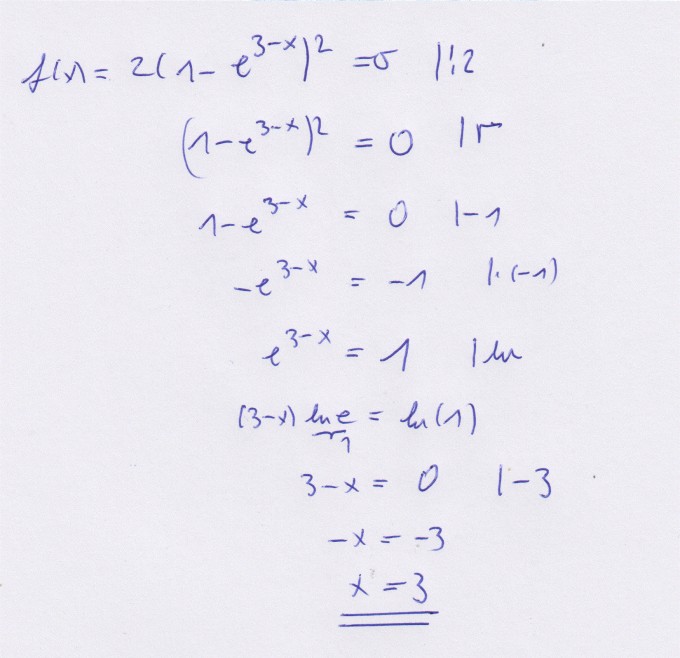 f(x) = 2(1-e^{3-x})^2 = 0 |:2
(1-e^{3-x})^2 = 0 |√
1-e^{3-x} = 0 |-1
-e^{3-x} = -1 |·(-1)
e^{3-x} = 1 |ln
(3-x) ln e = ln(1)
1
3-x = 0 |-3
-x = -3
x = 3